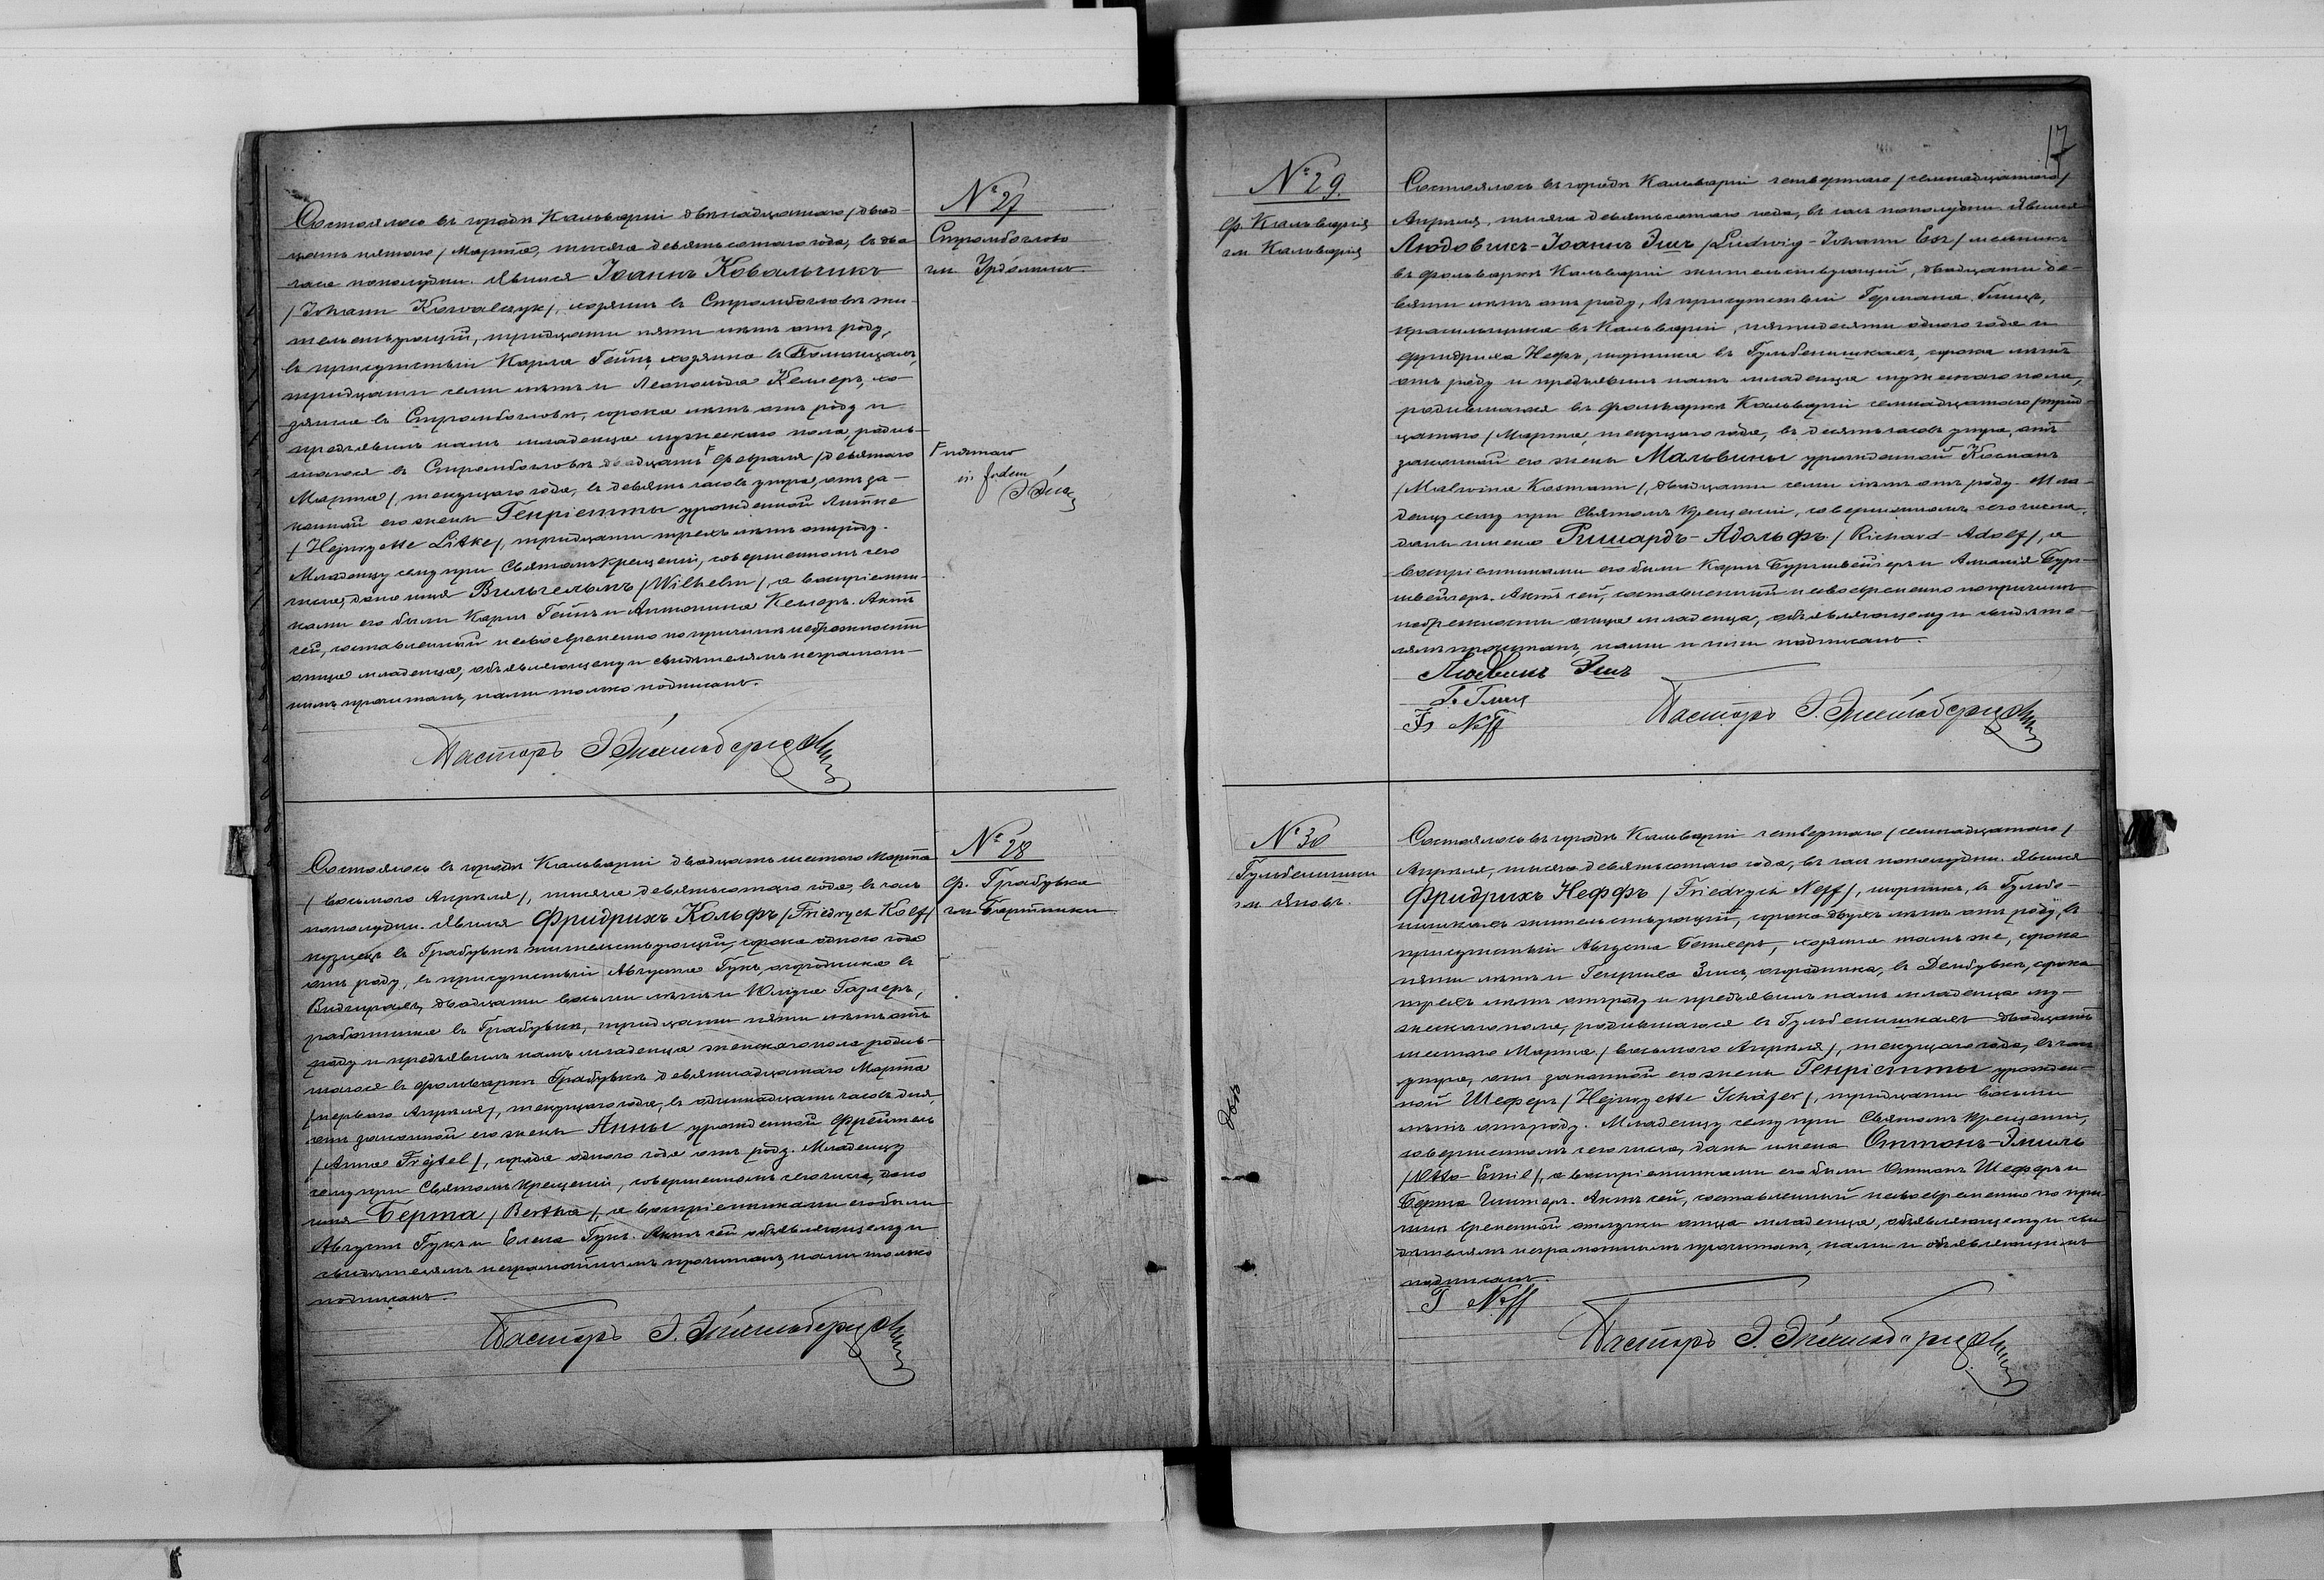 № 27
Стромбогловъ
гм. Урдоминъ
Состоялось въ городѣ Кальваріи двѣнадцатаго /двад-
цать пятаго/ Марта, тысяча девятьсотаго года, въ два
часа пополудни. Явился Іоаннъ Ковальчикъ
/Johann Kowalczyk/, хозяинъ въ Стромбогловѣ жи-
тельствующій, тридцати пяти лѣтъ отъ роду,
въ присутствіи Карла Гейнъ, хозяина въ
тридцати семи лѣтъ и Леопольда Келлеръ, хо-
зяина въ Стромбогловѣ, сорока лѣтъ отъ роду и
предъявилъ намъ младенца мужескаго пола, родив-
шагося въ Стромбогловѣ двадцать ꟻ Февраля /девятаго
ꟻ пятаго
in fidem
Марта/, текущаго года, въ девять часовъ утра, отъ за-
конной его жены Генріетты урожденной Литке
/Hejnryette Litke/, тридцати трехъ лѣтъ отъ роду.
Младенцу сему при Святомъ Крещеніи, совершенномъ сего
числа, дано имя Вильгельмъ /Wilhelm/, а воспріемни-
ками его были Карлъ Гейнъ и Антонина Келлеръ. Актъ
сей, составленный несвоевременно по причинѣ небрежности
отца младенца, объявляющему и свидѣтелямъ неграмот-
нымъ прочитанъ, нами только подписанъ.
Пасторъ
№ 28
Ф. Грабувка
гм. Бартники
Состоялось въ городѣ Кальваріи двадцать шестаго Марта
/восьмого Апрѣля/, тысяча девятьсотаго года, въ часъ
пополудни. Явился Фридрихъ Кольфъ /Friedrych Kolf/
кузнецъ въ Грабувкѣ жительствующій, сорока одного года
отъ роду, въ присутствіи Августа Гукъ, огородника въ
двадцати восьми лѣтъ и Юліуса
работника въ Грабувкѣ, тридцати пяти лѣтъ отъ
роду и предъявилъ намъ младенца женскаго пола родив-
шагося въ фольваркѣ Грабувкѣ девятнадцатаго Марта
/перваго Апрѣля/, текущаго года, въ одиннадцать часовъ дня,
отъ законной его жены Анны урожденной Фрейтель
/Anna Frejtel/, сорока одного года отъ роду. Младенцу
сему при Святомъ Крещеніи, совершенномъ сего числа, дано
имя Берта /Bertha/, а воспріемниками его были
Августъ Гукъ и Елена Гукъ. Актъ сей объявляющему и
свидѣтелямъ неграмотнымъ прочитанъ, нами только
подписанъ.
Пасторъ
17
№ 29.
Ф. Кальварія
гм. Кальварія
Состоялось въ городѣ Кальваріи четвертаго /семнадцатаго/
Апрѣля, тысяча девятьсотаго года, въ часъ пополудни. Явился
Людовикъ-Іоаннъ Эшъ /Ludwig-Johann Esz/ мельникъ
въ фольваркѣ Кальваріи жительствующій, двадцати де-
вяти лѣтъ отъ роду, въ присутствіи Германа
красильщика въ Кальваріи, пятидесяти одного года и
Фридриха Нефъ, шорника въ Гульбенишкахъ, сорока лѣтъ
отъ роду и предъявилъ намъ младенца мужескаго пола,
родившагося въ фольваркѣ Кальваріи семнадцатаго /трид-
цатаго/ Марта, текущаго года, въ десять часовъ утра, отъ
законной его жены Мальвины урожденной Косманъ
/Malwina Kosmann/, двадцати семи лѣтъ отъ роду. Мла-
денцу сему при Святомъ Крещеніи, совершенномъ сего числа,
даны имена Ришардъ-Адольфъ /Richard-Adolf/, а
воспріемниками его были Карлъ Бургшвейгеръ и Амалія Бург-
швейгеръ. Актъ сей, составленный несвоевременно по причинѣ
небрежности отца младенца, объявляющему и свидѣте-
лямъ прочитанъ, нами и ими подписанъ.
Людвикъ Эшъ
Fr Neff
Пасторъ
№ 30
Гульбенишки
гм. Яновъ.
Состоялось въ городѣ Кальваріи четвертаго /семнадцатаго/
Апрѣля, тысяча девятьсотаго года, въ часъ пополудни. Явился
Фридрихъ Неффъ /Friedrych Neff/, шорникъ, въ Гульбе-
нишкахъ жительствующій, сорока двухъ лѣтъ отъ роду, въ
присутствіи Августа хозяина тамъ же, сорока
пяти лѣтъ и Генриха огородника, въ Дембувкѣ, сорока
трехъ лѣтъ отъ роду и предъявилъ намъ младенца му-
жескаго пола, родившагося въ Гульбенишкахъ двадцать
шестаго Марта /восьмого Апрѣля/, текущаго года, въ часъ
утра, отъ законной его жены Генріетты урожден-
ной Шеферъ /Hejnryette Schäfer/, тридцати восьми
лѣтъ отъ роду. Младенцу сему при Святомъ Крещеніи,
совершенномъ сего числа, даны имена Оттонъ-Эмиль
/Otto-Emil/, а воспріемниками его были Оттонъ Шеферъ и
Берта Актъ сей, составленный несвоевременно по при-
чинѣ временной отлучки отца младенца, объявляющему и сви-
дѣтелямъ неграмотнымъ прочитанъ, нами и объявляющимъ
подписанъ.
F Neff
Пасторъ